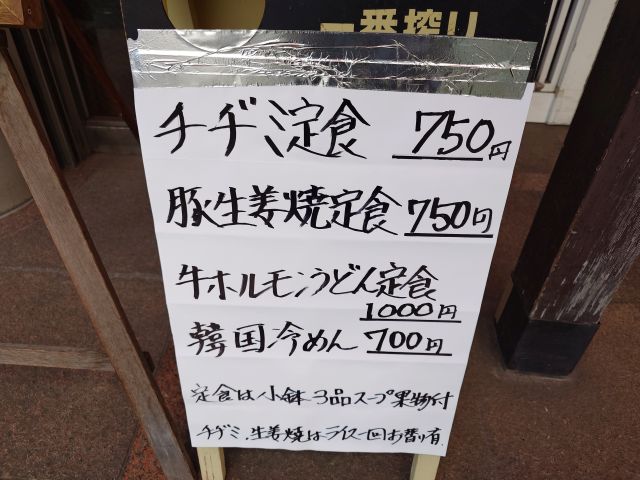 一番搾り
チヂミ定食 750円
豚生姜焼定食 750円
牛ホルモンうどん定食
1000円
韓国冷めん 700円
定食は小鉢3品スープ果物付
チヂミ、生姜焼はライス一回お替り有